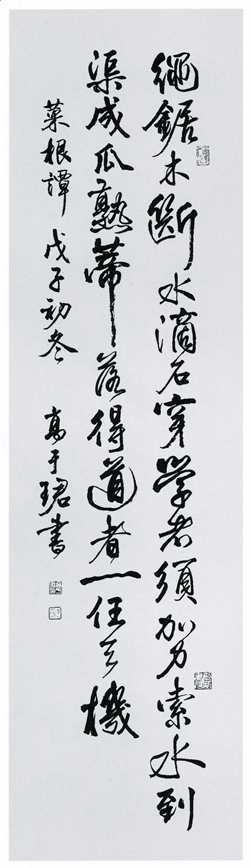 繩鋸木斷水滴石穿學者須加力索水到
渠成瓜熟蒂落得道者一任天機
菜根譚 戊子初冬 高于珺書